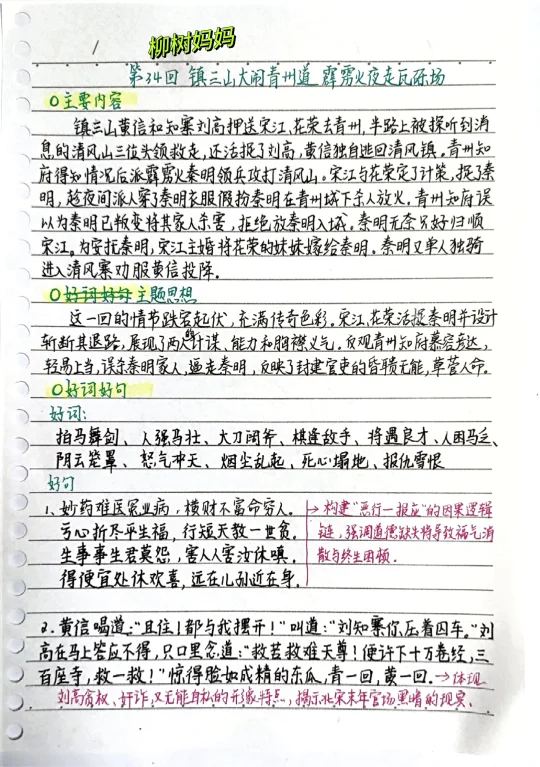 柳树妈妈
第34回 镇三山大闹青州道 霹雳火夜走瓦砾场
○主要内容
镇三山黄信和知寨刘高押送宋江、花荣去青州,半路上被探听到消
息的清风山三位头领救走,还活捉了刘高,黄信独自逃回清风镇。青州知
府得知情况后派霹雳火秦明领兵攻打清风山。宋江与花荣定了计策,捉了秦
明,趁夜间派人穿了秦明衣服假扮秦明在青州城下杀人放火。青州知府误
以为秦明已叛变将其家人杀害,拒绝放秦明入城。秦明无奈只好归顺
宋江。为安抚秦明,宋江主婚将花荣的妹妹嫁给秦明。秦明又单人独骑
进入清风寨劝服黄信投降。
○好词好句 主题思想
这一回的情节跌宕起伏,充满传奇色彩。宋江、花荣活捉秦明并设计
斩断其退路,展现了两人的计谋、能力和胸襟义气。反观青州知府慕容彦达,
轻易上当,误杀秦明家人,逼走秦明,反映了封建官吏的昏聩无能,草菅人命。
○好词好句
好词:
拍马舞剑、人强马壮、大刀阔斧、棋逢敌手、将遇良才、人困马乏、
阴云笼罩、怒气冲天、烟尘乱起、死心塌地、报仇雪恨
好句
1、妙药难医冤业病,横财不富命穷人。→构建“恶行—报应”的因果逻辑
亏心折尽平生福,行短天教一世贫。链,强调道德缺失将导致福气消
生事事生君莫怨,害人人害汝休嗔。散与终生困顿。
得便宜处休欢喜,远在儿孙近在身。
2、黄信喝道:“且住!都与我摆开!”叫道:“刘知寨你压着囚车。”刘
高在马上答应不得,只口里念道:“救苦救难天尊!便许下十万卷经,三
百座寺,救一救!”惊得脸如成精的东瓜,青一回,黄一回。→体现
刘高贪权、奸诈,又无能自私的形象特点,揭示北宋末年官场黑暗的现实。